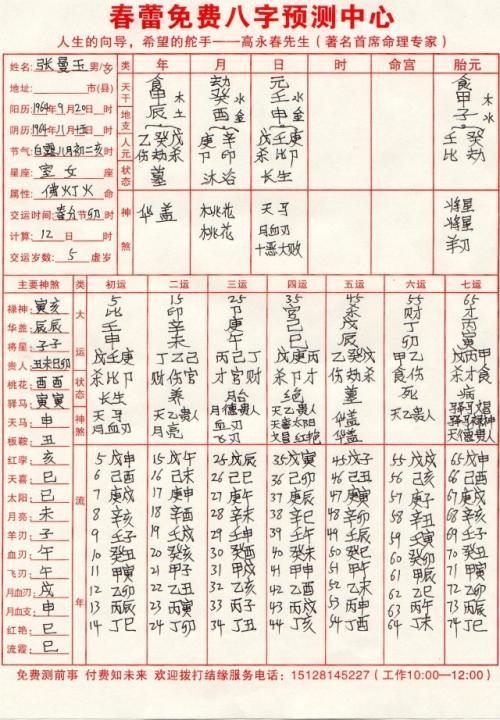 春蕾免费八字预测中心
人生的向导，希望的舵手——高永春先生（著名首席命理专家）
姓名: 张曼玉 男/女 类 年 月 日 时 命宫 胎元
地址: 市(县)
阳历: 1964年9月20日 时
节气: 白露八月初二亥
星座: 室女
属性: 佛灯火 命
交运时间: 春分节 卯
计算: 12 日 时
交运岁数: 5 虚岁
天干 食 劫 元 食
甲木 癸水 壬水 甲木
地支 辰土 酉金 申金 子水
人元 乙癸戊 庚辛 戊壬庚 壬癸
伤劫杀 卩印
状态 墓 沐浴 长生
神煞 华盖 桃花 天马 将星
桃花 月血刃 将星
十恶大败 羊刃
主要神煞 类 初运 二运 三运 四运 五运 六运 七运
大运 5 15 25 35 45 55 65
比 印 卩 官 杀 财 才
壬 辛 庚 己 戊 丁 丙
申 未 午 巳 辰 卯 寅
戊壬庚 丁乙己 丙己丁 戊庚丙 乙癸戊 甲乙 戊丙甲
杀比卩 财伤官 才官财 杀卩才 伤劫杀 食伤 杀才食
状态 长生 养 胎 绝 墓 死 病
神煞 天马 天乙贵人 月德贵人 天乙贵人 华盖 天乙贵人
月血刃 月亮 血刃 华盖
飞刃
禄神 寅亥
华盖 辰辰
将星 子子
贵人 丑未巳卯
桃花 酉酉
驿马 寅寅
天马 申
板鞍 丑
红孪 亥
天喜 巳
太阳 巳
月亮 未
羊刃 子
血刃 午
飞刃 午
月血刃 戊
月血支 申
红艳 巳
流霞 巳
流年
5 戊申 15 戊午 25 戊辰 35 戊寅 45 戊子 55 戊戌 65 戊申
6 己酉 16 己未 26 己巳 36 己卯 46 己丑 56 己亥 66 己酉
7 庚戌 17 庚申 27 庚午 37 庚辰 47 庚寅 57 庚子 67 庚戌
8 辛亥 18 辛酉 28 辛未 38 辛巳 48 辛卯 58 辛丑 68 辛亥
9 壬子 19 壬戌 29 壬申 39 壬午 49 壬辰 59 壬寅 69 壬子
10 癸丑 20 癸亥 30 癸酉 40 癸未 50 癸巳 60 癸卯 70 癸丑
11 甲寅 21 甲子 31 甲戌 41 甲申 51 甲午 61 甲辰 71 甲寅
12 乙卯 22 乙丑 32 乙亥 42 乙酉 52 乙未 62 乙巳 72 乙卯
13 丙辰 23 丙寅 33 丙子 43 丙戌 53 丙申 63 丙午 73 丙辰
14 丁巳 24 丁卯 34 丁丑 44 丁亥 54 丁酉 64 丁未 74 丁巳
免费测前事 付费知未来 欢迎拨打结缘服务电话：15128145227（工作10:00—12:00）